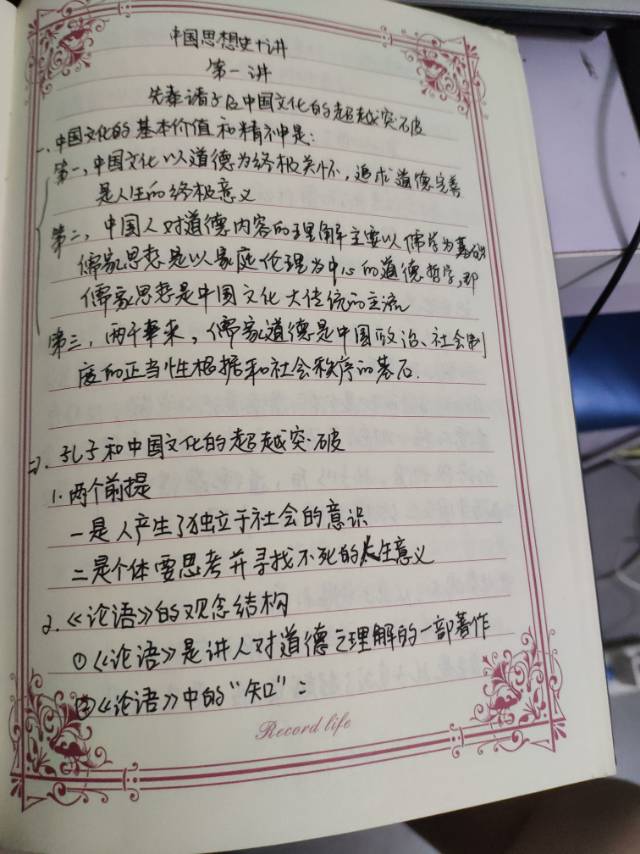 中国思想史十讲
第一讲
先秦诸子及中国文化的超越突破
一、中国文化的基本价值和精神是:
第一,中国文化以道德为终极关怀,追求道德完善
是人生的终极意义
第二,中国人对道德内容的理解主要以儒学为基础
儒家思想是以家庭伦理为中心的道德哲学,即
儒家思想是中国文化大传统的主流
第三,两千年来,儒家道德是中国政治、社会制
度的正当性根据和社会秩序的基石.
二、孔子和中国文化的超越突破
1.两个前提
一是人产生了独立于社会的意识
二是个体要思考并寻找不死的人生意义
2.《论语》的观念结构
①《论语》是讲人对道德之理解的一部著作
②《论语》中的"知":
Record life